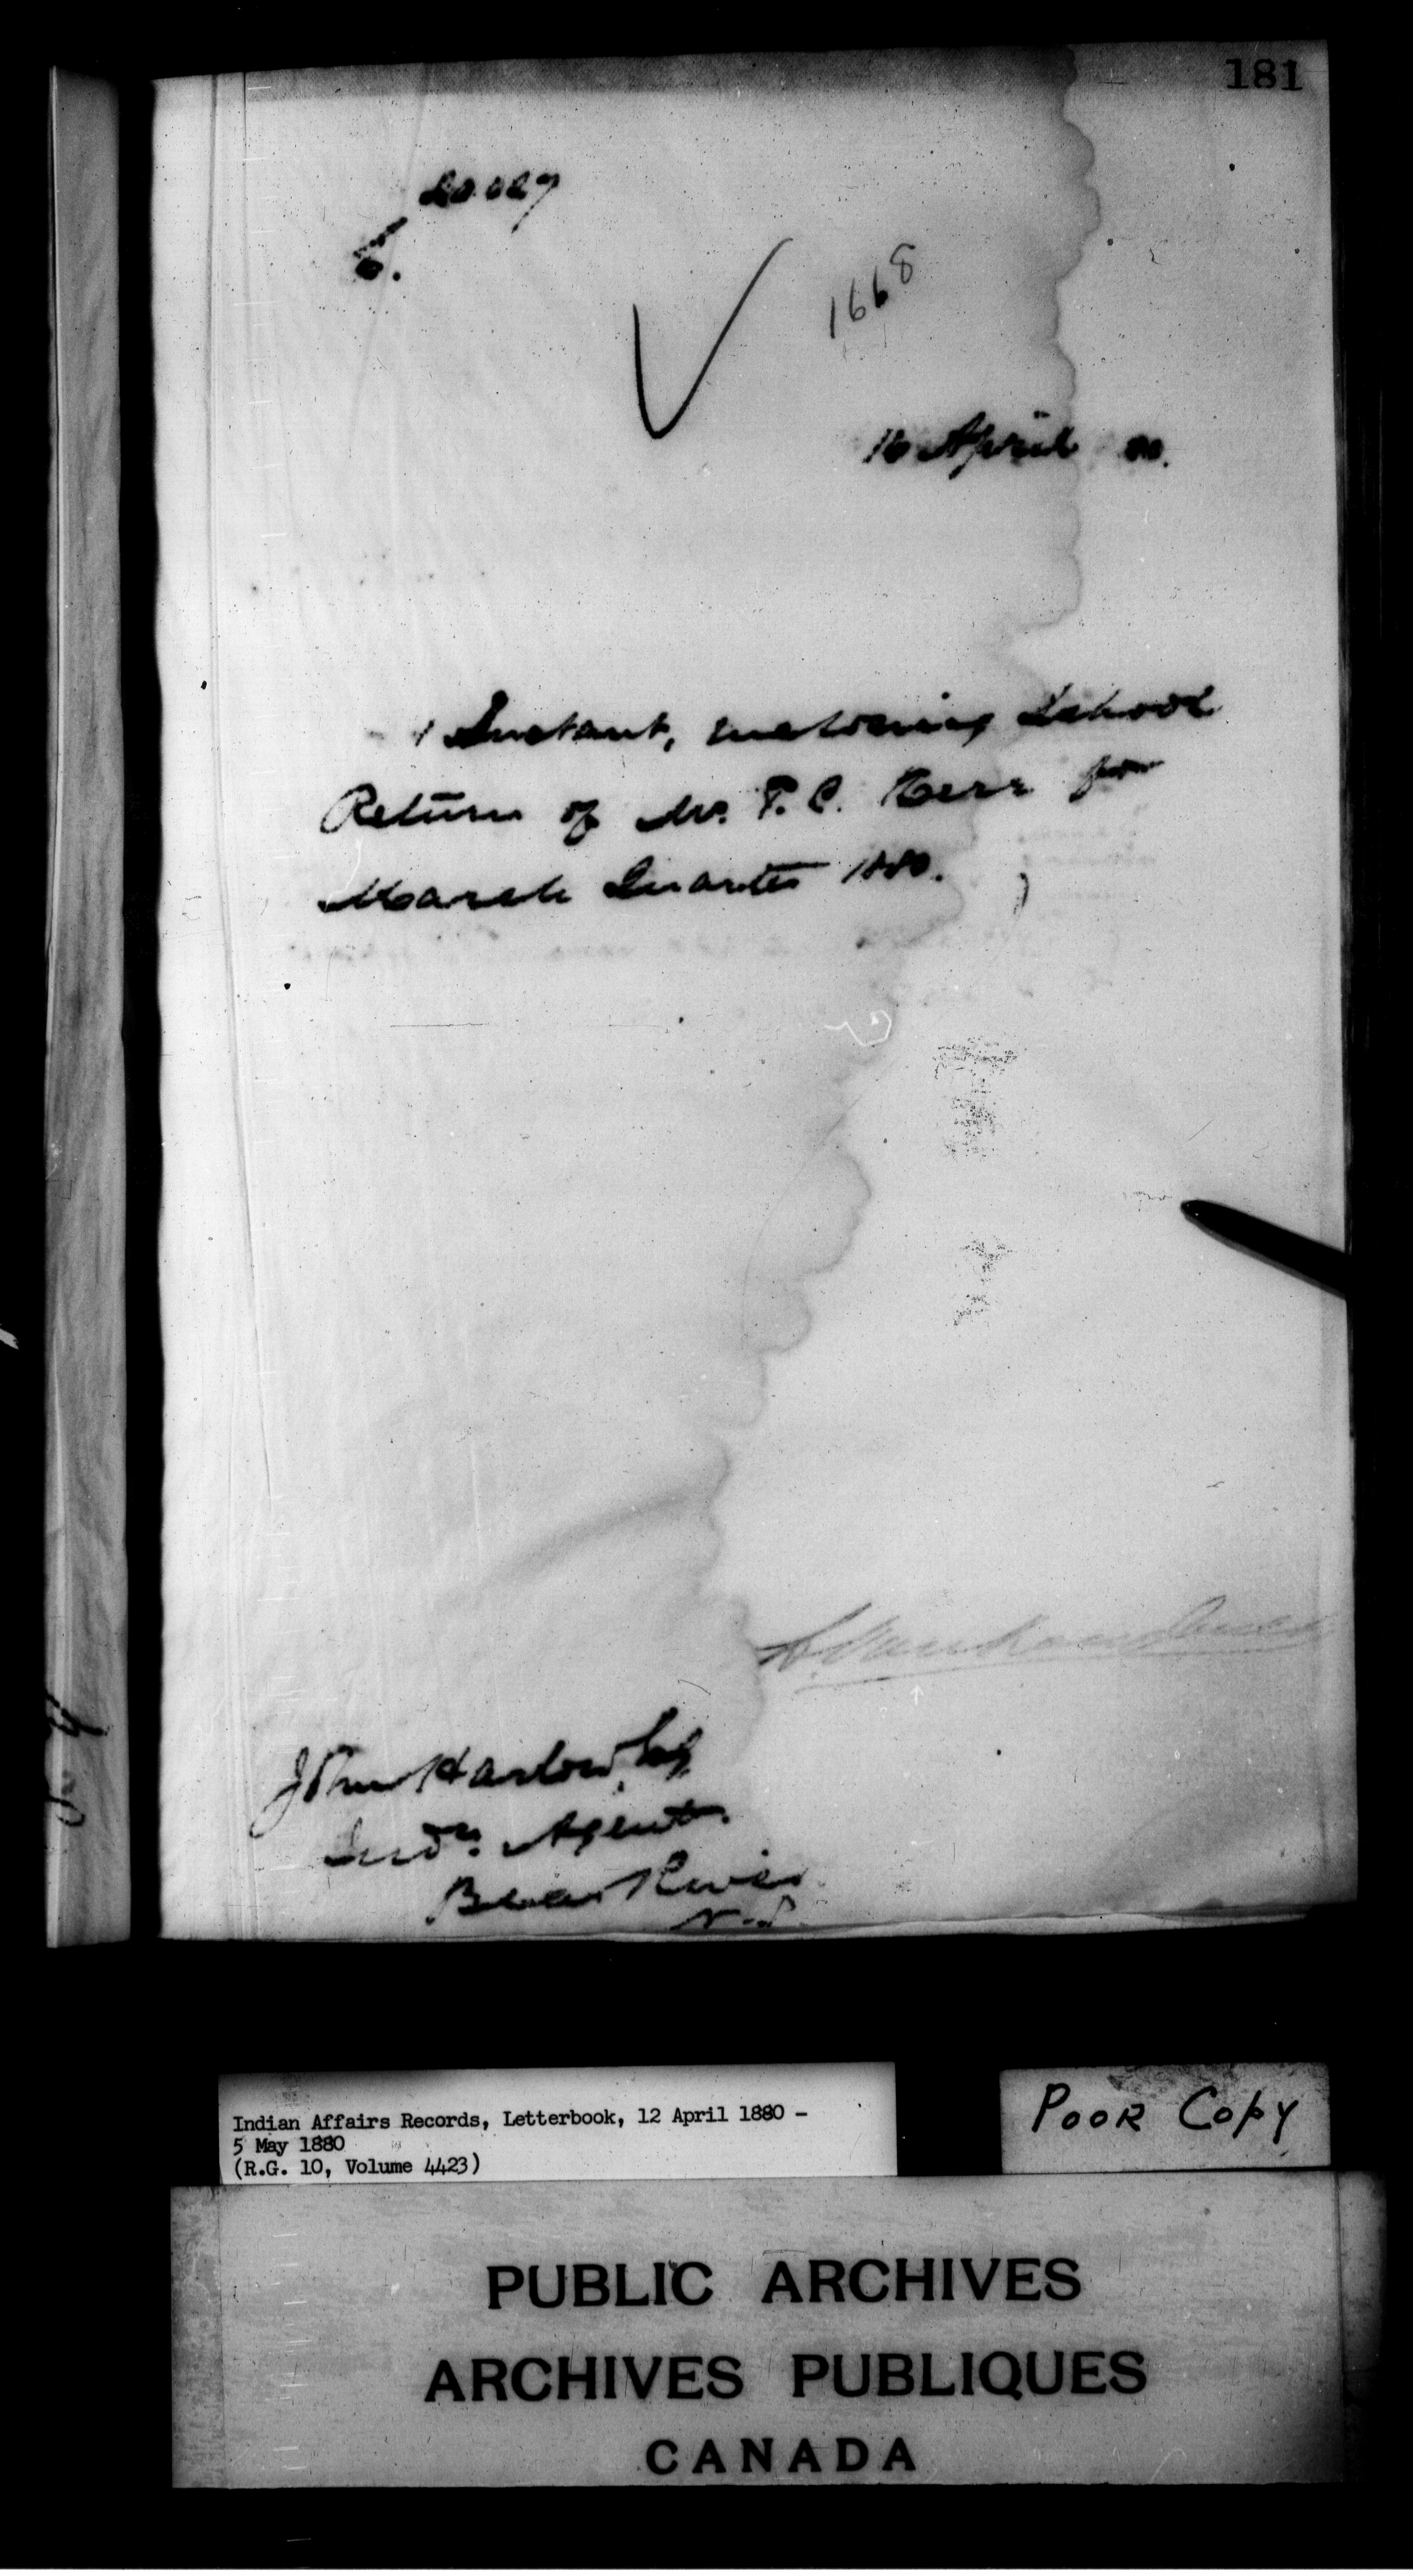 181
20.029
6.
1668
16 April 80.
1 Instant, enclosing School
Return of Mr. P. C. Kerr for
March Quarter 1880.
L. Vankoughnet
John Harlow, Esq
Indn. Agent.
Bear River
N.S.
Indian Affairs Records, Letterbook, 12 April 1880 -
5 May 1880
(R.G. 10, Volume 4423)
POOR COPY
PUBLIC ARCHIVES
ARCHIVES PUBLIQUES
CANADA